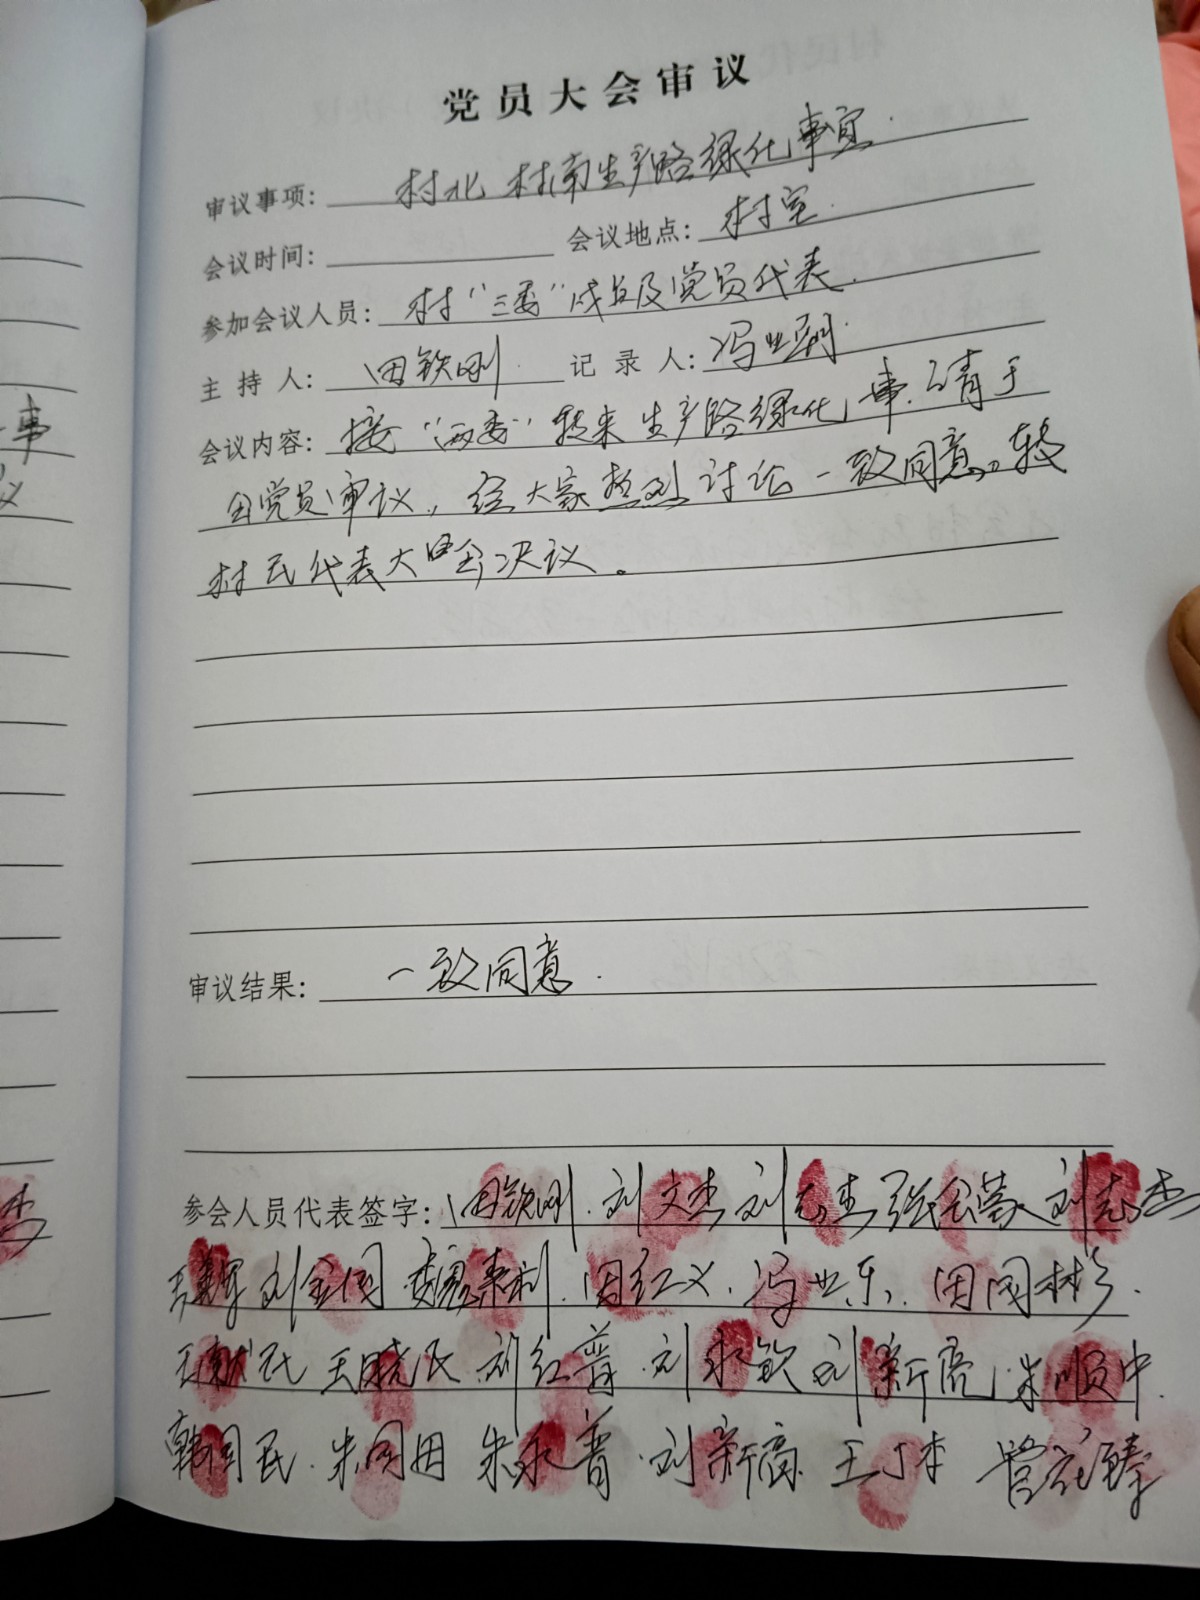 党员大会审议
审议事项: 村北 村南生产路绿化事宜.
会议时间: 会议地点: 村室.
参加会议人员: 村“三委”成员及党员代表.
主持人: 田钦刚. 记录人: 冯业
会议内容: 接“两委”转来生产路绿化一事. 请于
党员审议, 经大家热烈讨论一致同意, 转
村民代表大会决议。
审议结果: 一致同意.
参会人员代表签字: 田钦刚. 刘文杰 刘志杰 张会荣 刘志杰
刘金同 魏秉利. 田红义. 冯业乐. 田国彬.
王献民 王晓民 刘红普. 刘永钦 刘新亮 朱顺中.
韩同民. 朱同田 朱永普. 刘新高. 王丁本
事
议
杰